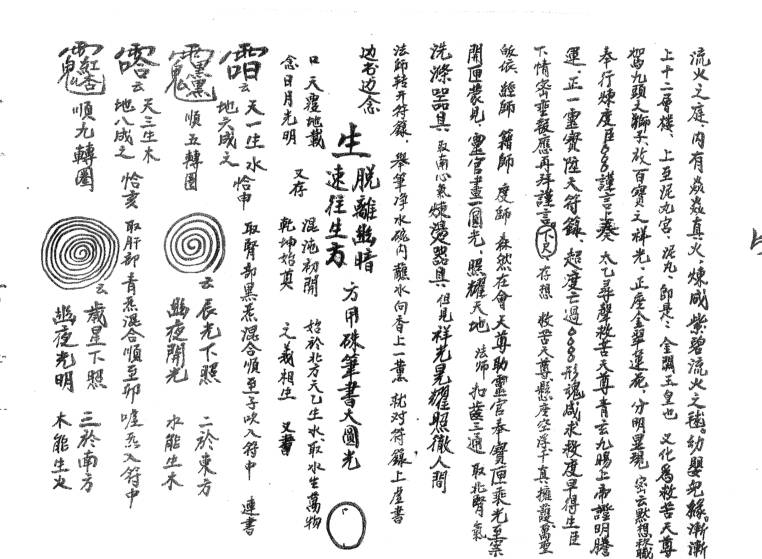 流火之庭內有焱焱真火煉成紫碧流火之毬幼嬰兒緣漸漸
上十二層樓、上至泥丸宮、泥丸、即是、金闕玉皇也 又化為救苦天尊
駕九頭之獅子、放百寶之祥光、正座金翠蓮花、分明显現 密云默想称職
奉行煉度臣 謹言上奏 太乙尋聲救苦天尊青玄九陽上帝證明謄
運、正一靈寶陞天符籙、超度亡過 形魂咸求救度早得生臣
下情密聖報應再拜謹言 存想 救苦天尊懸座空浮十真擁護萬聖
皈依 經師 籍師 度師 森然在會天尊助靈官奉寶匣乘光至案
開匣蒙見、靈官畫一圓光、照耀天地 法師 扣齒三通 取北腎氣
洗滌器具、取南心氣煉燙器具 但見 祥光晃耀照徹人間
法師轉开符籙、舉筆淨水碗內蘸水向香上一薰 就对符籙上虛書
边书边念 生 脫離幽暗 速往生方 方用硃筆書大圓光
口 天覆地載 念日月光明 又存 混沌初開 乾坤始奠 始於北方天乙生水、取水生萬物 之義相生 又書
云 天一生水 地六成之 恰申 取腎部黑炁混合順至子吹入符中 連書
順五轉圈 云 辰光下照 幽夜開光 二於東方 水能生木
云 天三生木 地八成之 恰亥 取肝部青炁混合順至卯 噓炁入符中
順九轉圈 云 歲星下照 幽夜光明 三於南方 木能生火